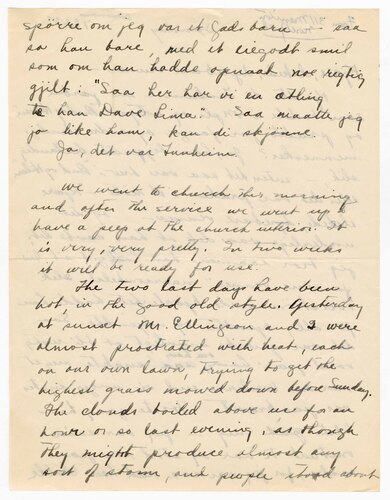 spørre om jeg var et Guds barn – saa
sa han bare, med et uegodt smil
som om han hadde opnaat noe rigtig
gjilt: "Saa her har vi en ætling
te han Dave Lima." Saa maatte jeg
jo like ham, kan di skjønne.
Ja, det var Tunheim.
We went to church this morning
and after the service we went up to
have a peep at the church interior. It
is very, very pretty. In two weeks
it will be ready for use.
The two last days have been
hot, in the good old style. Yesterday
at sunset Mr. Ellingson and I were
almost prostrated with heat, each
on our own lawn, trying to get the
highest grass mowed down before Sunday.
The clouds boiled above us for an
hour or so last evening, as though
they might produce almost any
sort of storm, and people stood about